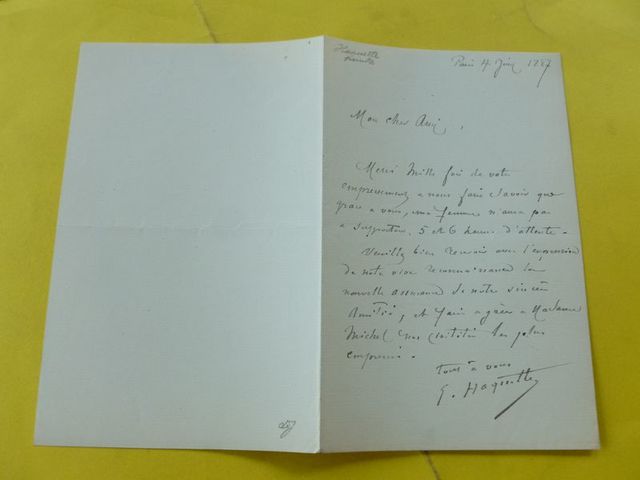 Haquette
Peintre
Paris 4 Juin 1887
Mon cher Ami,
Merci Mille fois de votre
empressement a nous faire savoir que
grâce a vous, ma femme n'aura pas
a supporter 5 et 6 heures d'attente.
Veuillez bien recevoir avec l'expression
de notre vive reconnaissance la
nouvelle assurance de notre sincère
Amitié, et faire agréer a Madame
Michel nos civilités les plus
empressées.
Tout à vous
G. Haquette